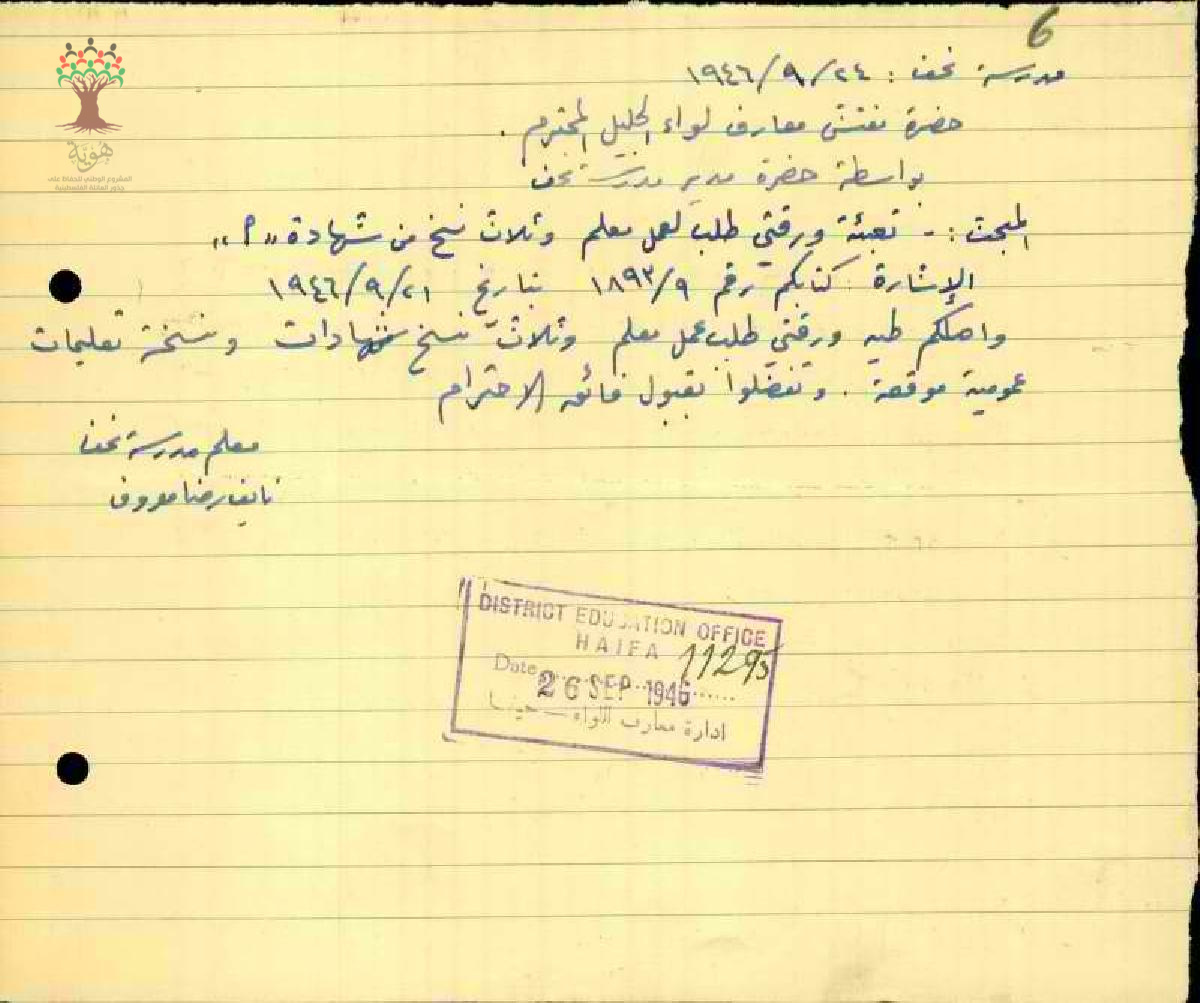 6
مدرسة نحف : ٢٤/٩/١٩٤٦
حضرة مفتش معارف لواء الجليل المحترم .
بواسطة حضرة مدير مدرسة نحف
المبحث :- تعبئة ورقتي طلب لعمل معلم وثلاث نسخ من شهادة "م"
الإشارة : كتابكم رقم ١٨٩٣/٩ بتاريخ ٢١/٩/١٩٤٦
واصلكم طيه ورقتي طلب عمل معلم وثلاث نسخ شهادات ونسخة تعليمات
عمومية موقعة . وتفضلوا بقبول فائق الاحترام
معلم مدرسة نحف
نايف رضا
DISTRICT EDUCATION OFFICE
HAIFA
11295
Date 26 SEP 1946
ادارة معارف اللواء - حيفا
هوية
المشروع الوطني للحفاظ على
جذور العائلة الفلسطينية